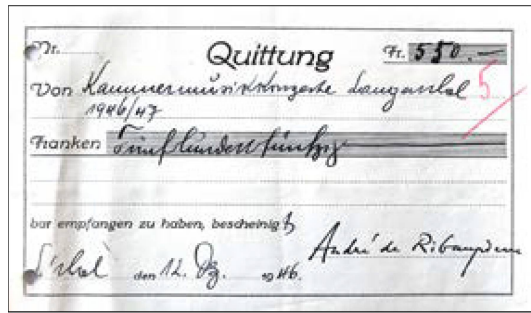 Nr. Quittung Fr. 550.—
Von Kammermusikkonzerte Langenthal 5
1946/47
Franken Fünfhundertfünfzig
bar empfangen zu haben, bescheinigt
L'thal den 12. Dz. 1946.
André de Ribaupierre